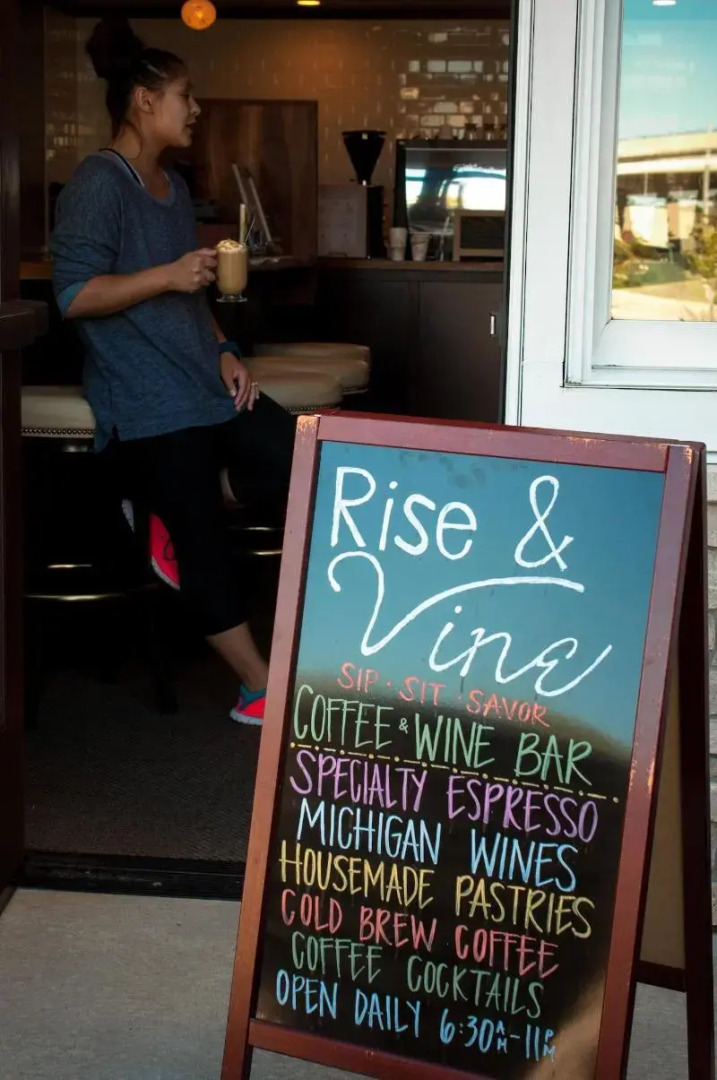 Rise &
Vine
SIP · SIT SAVOR
COFFEE & WINE BAR
SPECIALTY ESPRESSO
MICHIGAN WINES
HOUSEMADE PASTRIES
COLD BREW COFFEE
COFFEE COCKTAILS
OPEN DAILY 6:30AM-11PM